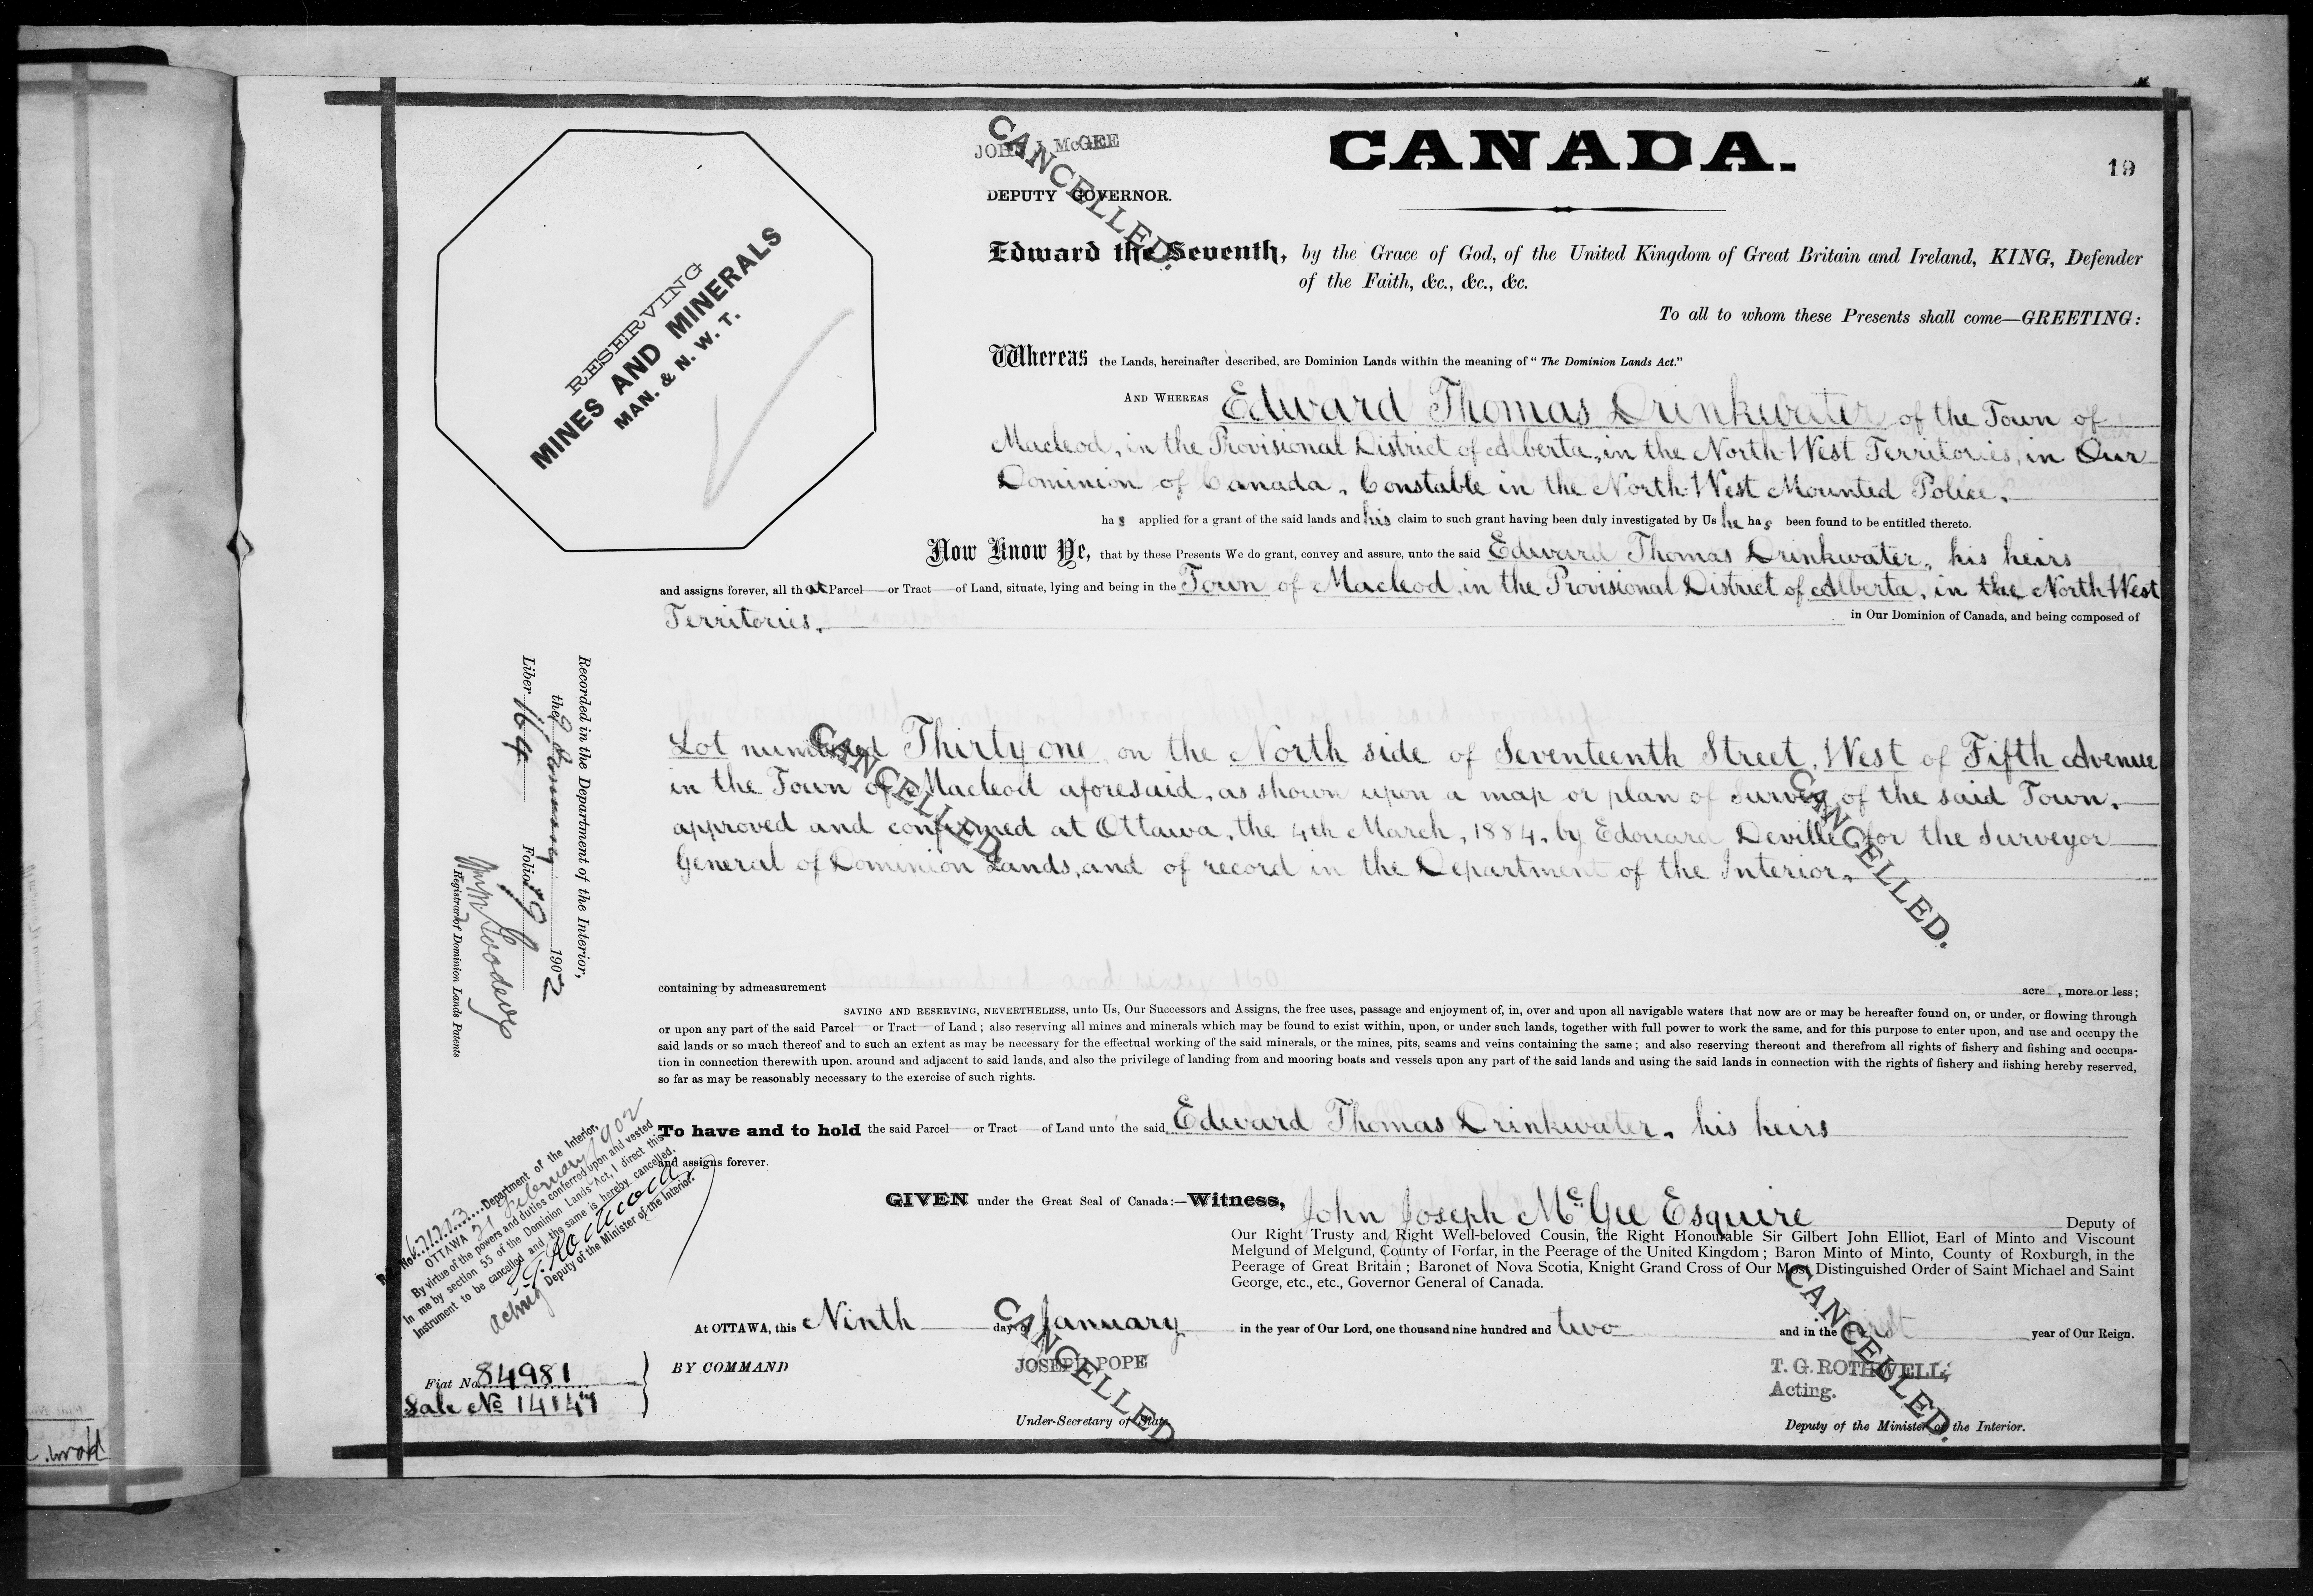 CANADA.
19
JOHN J. McGEE
CANCELLED.
DEPUTY GOVERNOR.
RESERVING
MINES AND MINERALS
MAN. & N. W. T.
Edward the Seventh, by the Grace of God, of the United Kingdom of Great Britain and Ireland, KING, Defender
of the Faith, &c., &c., &c.
To all to whom these Presents shall come—GREETING:
Whereas the Lands, hereinafter described, are Dominion Lands within the meaning of "The Dominion Lands Act."
AND WHEREAS Edward Thomas Drinkwater of the Town of
Macleod, in the Provisional District of Alberta, in the North-West Territories, in Our
Dominion of Canada, Constable in the North-West Mounted Police,
has applied for a grant of the said lands and his claim to such grant having been duly investigated by Us he has been found to be entitled thereto.
Now Know Ye, that by these Presents We do grant, convey and assure, unto the said Edward Thomas Drinkwater, his heirs
and assigns forever, all that Parcel or Tract of Land, situate, lying and being in the Town of Macleod, in the Provisional District of Alberta, in the North-West
Territories, in Our Dominion of Canada, and being composed of
Lot numbered Thirty one, on the North side of Seventeenth Street, West of Fifth Avenue
in the Town of Macleod aforesaid, as shown upon a map or plan of survey of the said Town,
approved and confirmed at Ottawa, the 4th March, 1884, by Edouard Deville, for the Surveyor
General of Dominion Lands, and of record in the Department of the Interior.
CANCELLED.
CANCELLED.
containing by admeasurement acre , more or less;
SAVING AND RESERVING, NEVERTHELESS, unto Us, Our Successors and Assigns, the free uses, passage and enjoyment of, in, over and upon all navigable waters that now are or may be hereafter found on, or under, or flowing through
or upon any part of the said Parcel or Tract of Land; also reserving all mines and minerals which may be found to exist within, upon, or under such lands, together with full power to work the same, and for this purpose to enter upon, and use and occupy the
said lands or so much thereof and to such an extent as may be necessary for the effectual working of the said minerals, or the mines, pits, seams and veins containing the same; and also reserving thereout and therefrom all rights of fishery and fishing and occupa-
tion in connection therewith upon, around and adjacent to said lands, and also the privilege of landing from and mooring boats and vessels upon any part of the said lands and using the said lands in connection with the rights of fishery and fishing hereby reserved,
so far as may be reasonably necessary to the exercise of such rights.
To have and to hold the said Parcel or Tract of Land unto the said Edward Thomas Drinkwater, his heirs
and assigns forever.
GIVEN under the Great Seal of Canada:—Witness, John Joseph McGee Esquire Deputy of
Our Right Trusty and Right Well-beloved Cousin, the Right Honourable Sir Gilbert John Elliot, Earl of Minto and Viscount
Melgund of Melgund, County of Forfar, in the Peerage of the United Kingdom; Baron Minto of Minto, County of Roxburgh, in the
Peerage of Great Britain; Baronet of Nova Scotia, Knight Grand Cross of Our Most Distinguished Order of Saint Michael and Saint
George, etc., etc., Governor General of Canada.
At OTTAWA, this Ninth day of January in the year of Our Lord, one thousand nine hundred and two and in the first year of Our Reign.
BY COMMAND
JOSEPH POPE
CANCELLED
Under-Secretary of State.
T. G. ROTHWELL,
Acting.
CANCELLED.
Deputy of the Minister of the Interior.
Recorded in the Department of the Interior,
the January 1902
Liber 164 Folio 19
Registrar of Dominion Lands Patents
Department of the Interior,
OTTAWA 21 February 1902
By virtue of the powers and duties conferred upon and vested
in me by section 55 of the Dominion Lands Act, I direct this
Instrument to be cancelled and the same is hereby cancelled.
T. G. Rothwell
Acting Deputy of the Minister of the Interior.
Fiat No. 84981
Sale No 14147